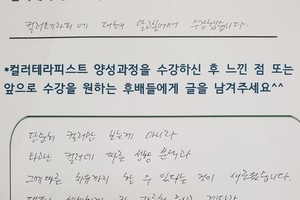 컬러테라피에 대해 알고싶어서 수강했습니다.
*컬러테라피스트 양성과정을 수강하신 후 느낀 점 또는
앞으로 수강을 원하는 후배들에게 글을 남겨주세요^^
단순히 컬러만 보는게 아니라
타고난 컬러에 따른 성향 분석과
그에따른 치유까지 할 수 있다는 것이 새로웠습니다.